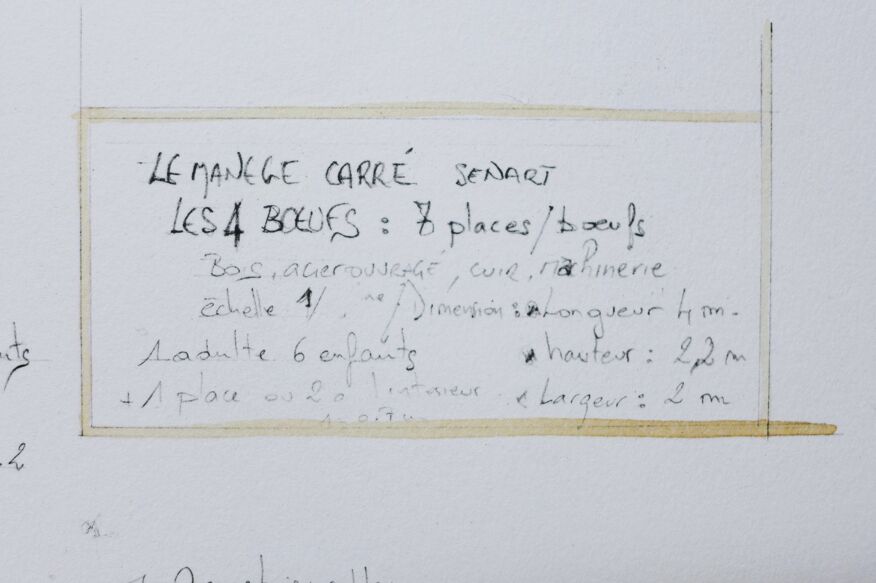 LE MANEGE CARRÉ SENART
LES 4 BŒUFS : 7 places/bœufs
Bois, acier ouvragé, cuir, machinerie
échelle 1/ ne / Dimension : Longueur 4 m.
1 adulte 6 enfants hauteur : 2,2 m
+ 1 place ou 2 a l'interieur Largeur : 2 m